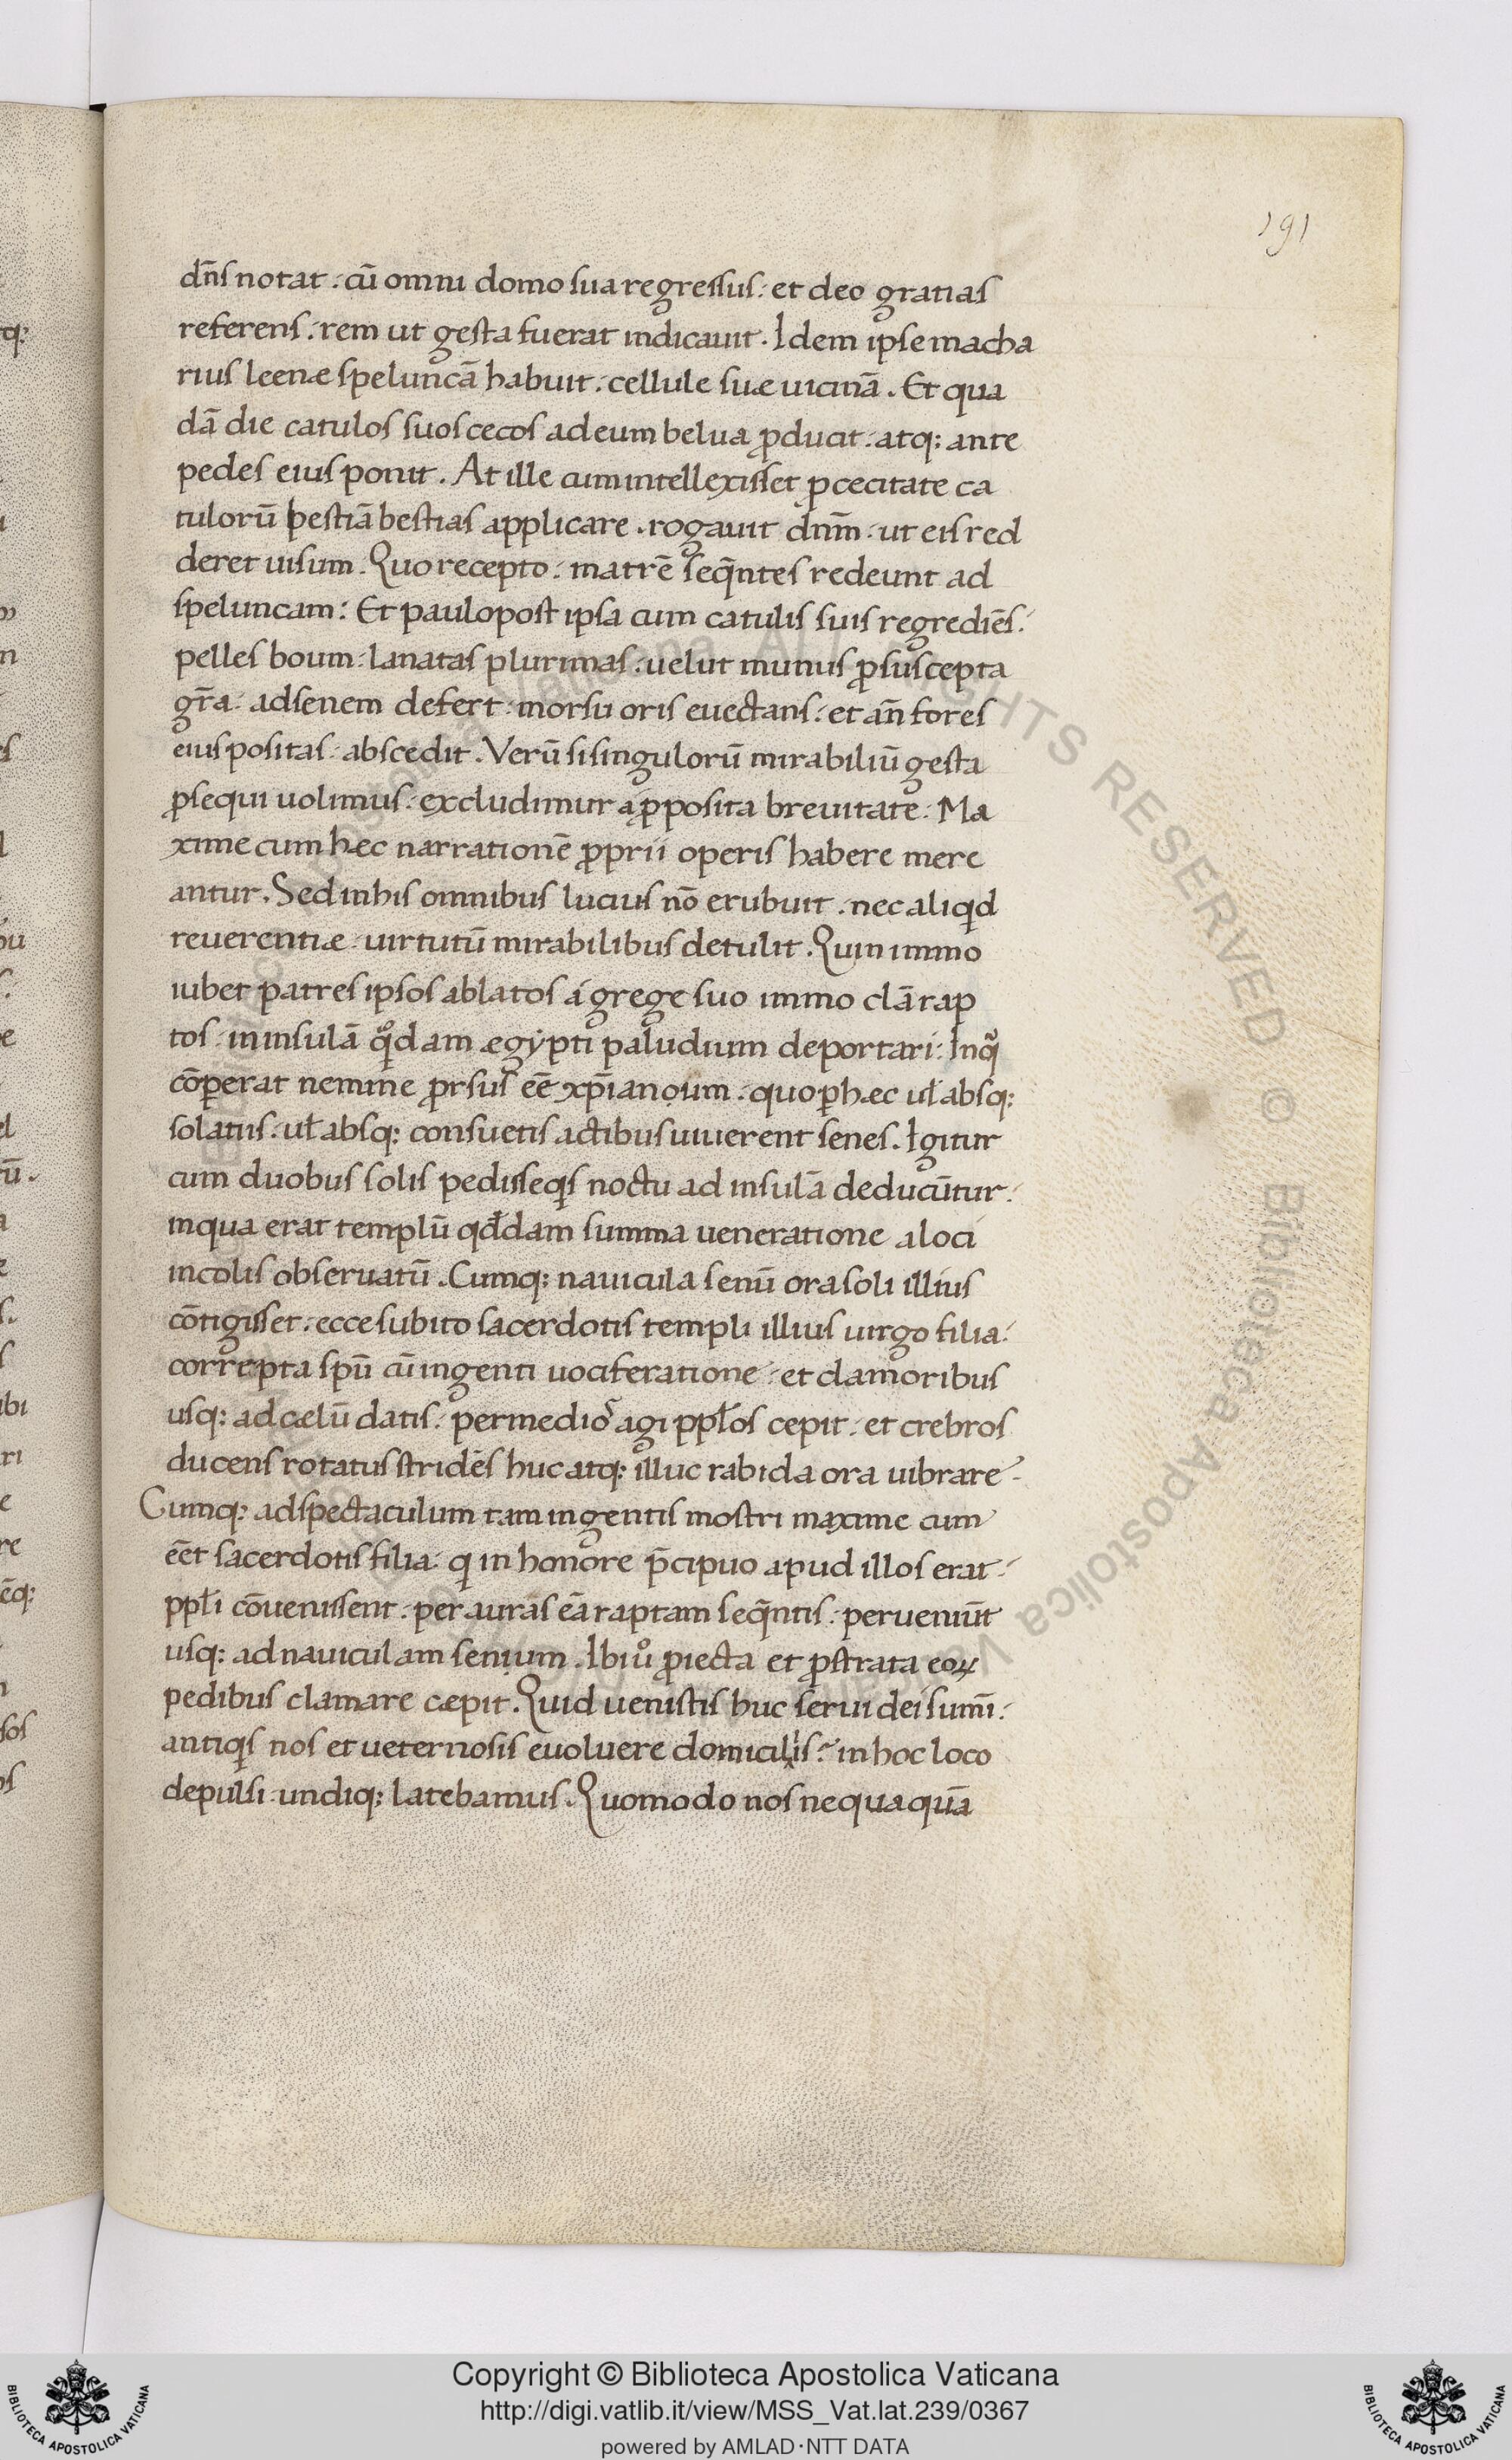 191
dn̄s notat . cū omni domo sua regressus : et deo gratias
referens : rem ut gesta fuerat indicauit . Idem ipse macha
rius leenæ speluncā habuit : cellule suæ uicinā . Et qua
dā die catulos suos cecos ad eum belua ꝓducit : atq: ante
pedes eius ponit . At ille cum intellexisset ꝓ cecitate ca
tulorū bestiā bestias applicare . rogauit dnm̄ . ut eis red
deret uisum . Quo recepto : matrē seq̄ntes redeunt ad
speluncam : Et paulo post ipsa cum catulis suis regrediēs :
pelles boum : lanatas plurimas : uelut munus ꝓ suscepta
gr̄a : ad senem defert : morsu oris euectans : et an̄ fores
eius positas : abscedit . Verū si singulorū mirabiliū gesta
ꝓsequi uolimus : excludimur a ꝓposita breuitate : Ma
xime cum hęc narrationē ꝓprii operis habere mere
antur . Sed in his omnibus lucius nō erubuit . nec aliqid
reuerentiæ uirtutū mirabilibus detulit . Quin immo
iubet patres ipsos ablatos a grege suo immo clā rap
tos : in insulā qͦdam ægypti paludium deportari : In qͣ
cōꝑerat nemine ꝓrsus eē xp̄ianoum : quo ꝑ hæc uł absq:
solatiis : uł absq: consuetis actibus uiuerent senes . Igitur
cum duobus solis pedisseqis noctu ad insulā deducūtur :
in qua erat templū qđdam summa ueneratione a loci
incolis obseruatū . Cumq: nauicula senū ora soli illius
cōtigisset : ecce subito sacerdotis templi illius uirgo filia :
correpta spū cū ingenti uociferatione : et clamoribus
usq: ad cælū datis : per medios agi ppłos cepit : et crebros
ducens rotatus stridēs huc atq: illuc rabida ora uibrare .
Cumq: ad spectaculum tam ingentis mostri maxime cum
eēt sacerdotis filia : qi in honore p̄cipuo apud illos erat :
ppłi cōuenissent : per auras eā raptam seq̄ntis : perueniūt
usq: ad nauiculam senium . Ibi uͦ ꝓiecta et ꝓstrata eoꝝ
pedibus clamare cæpit . Quid uenistis huc serui dei sum̄i :
antiqis nos et ueternosis euoluere domiciliis : in hoc loco
depulsi undiq: latebamus . Quomodo nos nequaquā
Copyright © Biblioteca Apostolica Vaticana
http://digi.vatlib.it/view/MSS_Vat.lat.239/0367
powered by AMLAD·NTT DATA
BIBLIOTECA APOSTOLICA VATICANA
BIBLIOTECA APOSTOLICA VATICANA